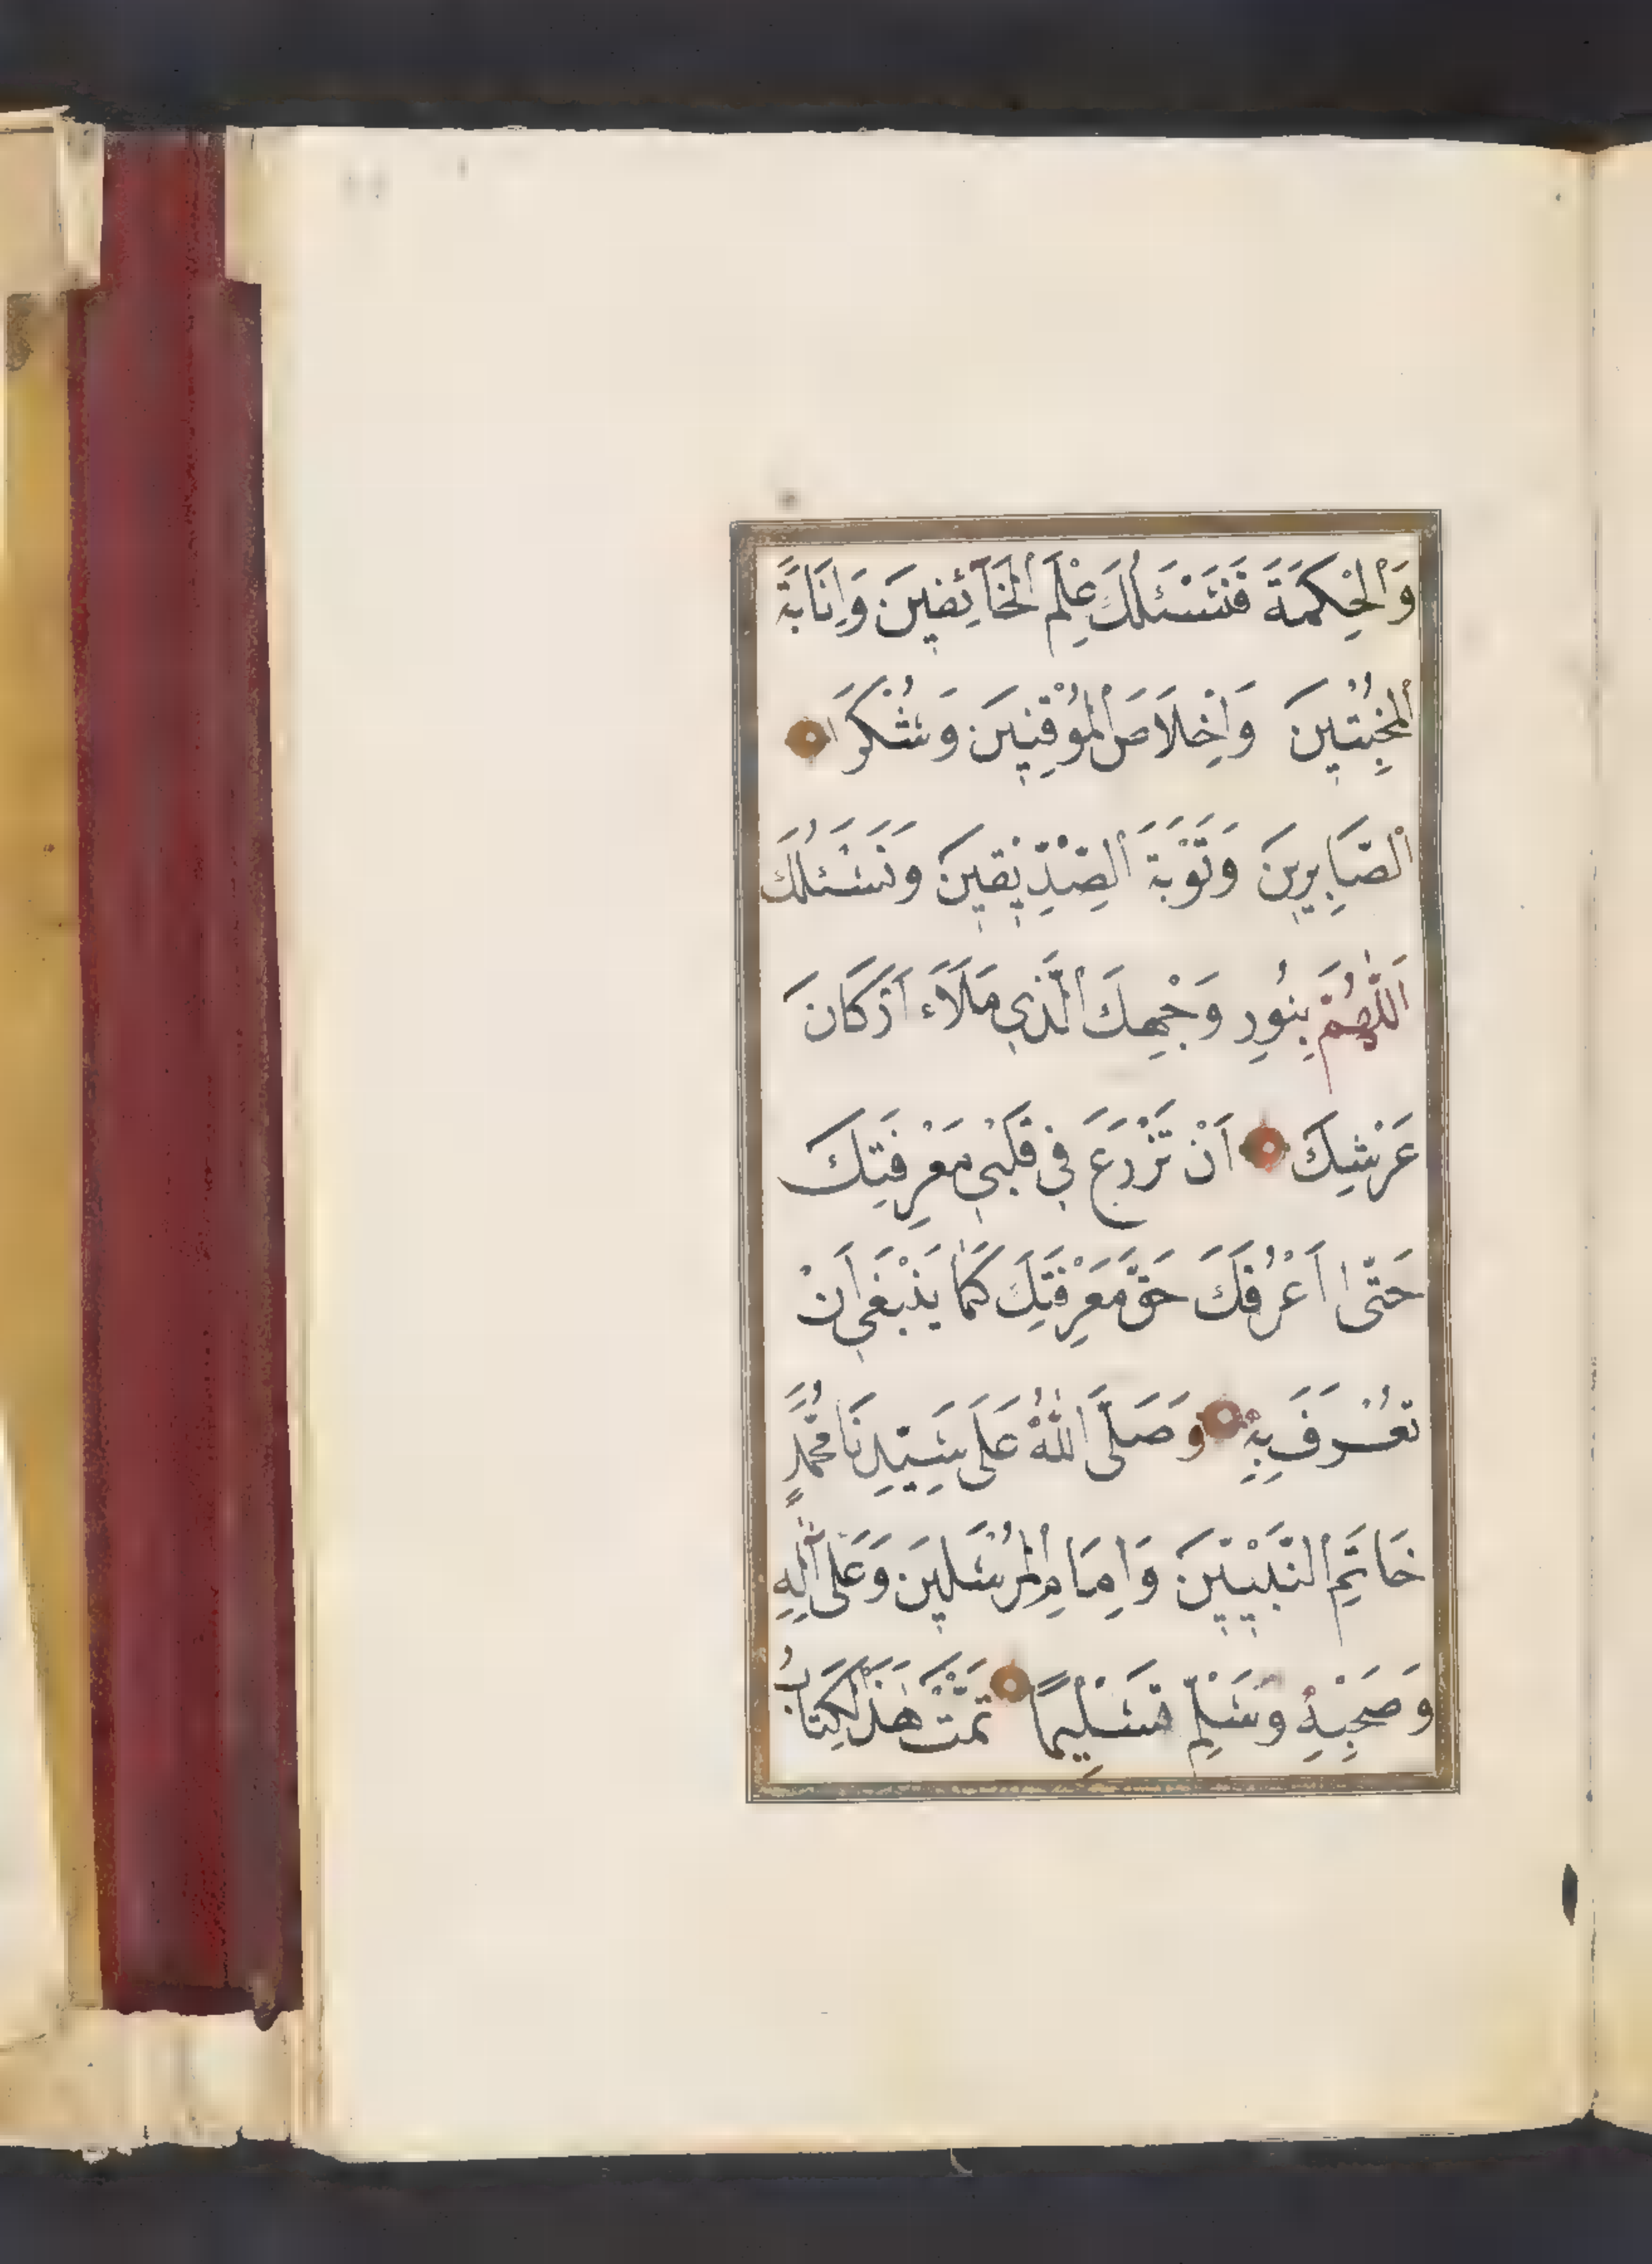 وَالْحِكْمَةَ فَنَسْئَلُكَ عِلْمَ الْخَآئِفِينَ وَاِنَابَةَ
الْمُخْبِتِينَ وَاِخْلَاصَ الْمُوْقِنِينَ وَشُكْرَ
الصَّابِرِينَ وَتَوْبَةَ الصِّدِّيقِينَ وَنَسْئَلُكَ
اَللّٰهُمَّ بِنُورِ وَجْهِكَ الَّذِي مَلَاَءَ اَرْكَانَ
عَرْشِكَ اَنْ تَزْرَعَ فِي قَلْبِي مَعْرِفَتَكَ
حَتّٰى اَعْرِفَكَ حَقَّ مَعْرِفَتِكَ كَمَا يَنْبَغِي اَنْ
تُعْرَفَ بِهِ وَصَلَّى اللّٰهُ عَلَى سَيِّدِنَا مُحَمَّدٍ
خَاتَمِ النَّبِيِّينَ وَاِمَامِ الْمُرْسَلِينَ وَعَلَى اٰلِهِ
وَصَحْبِهِ وَسَلِّمْ تَسْلِيمًا تَمَّتْ هٰذَا الْكِتَابُ